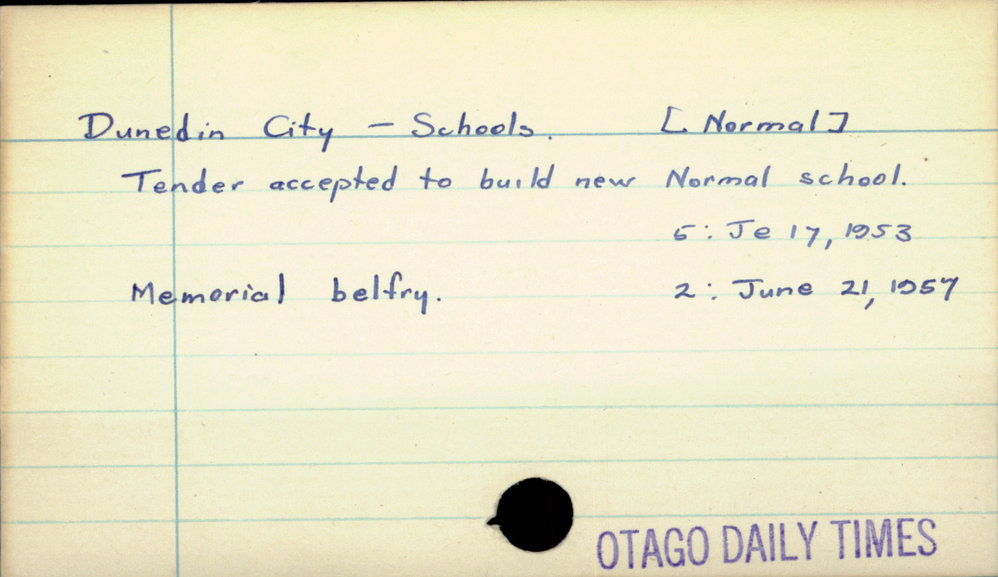 Dunedin City - Schools. [Normal]
Tender accepted to build new Normal school.
5: Je 17, 1953
Memorial belfry. 2: June 21, 1957
OTAGO DAILY TIMES